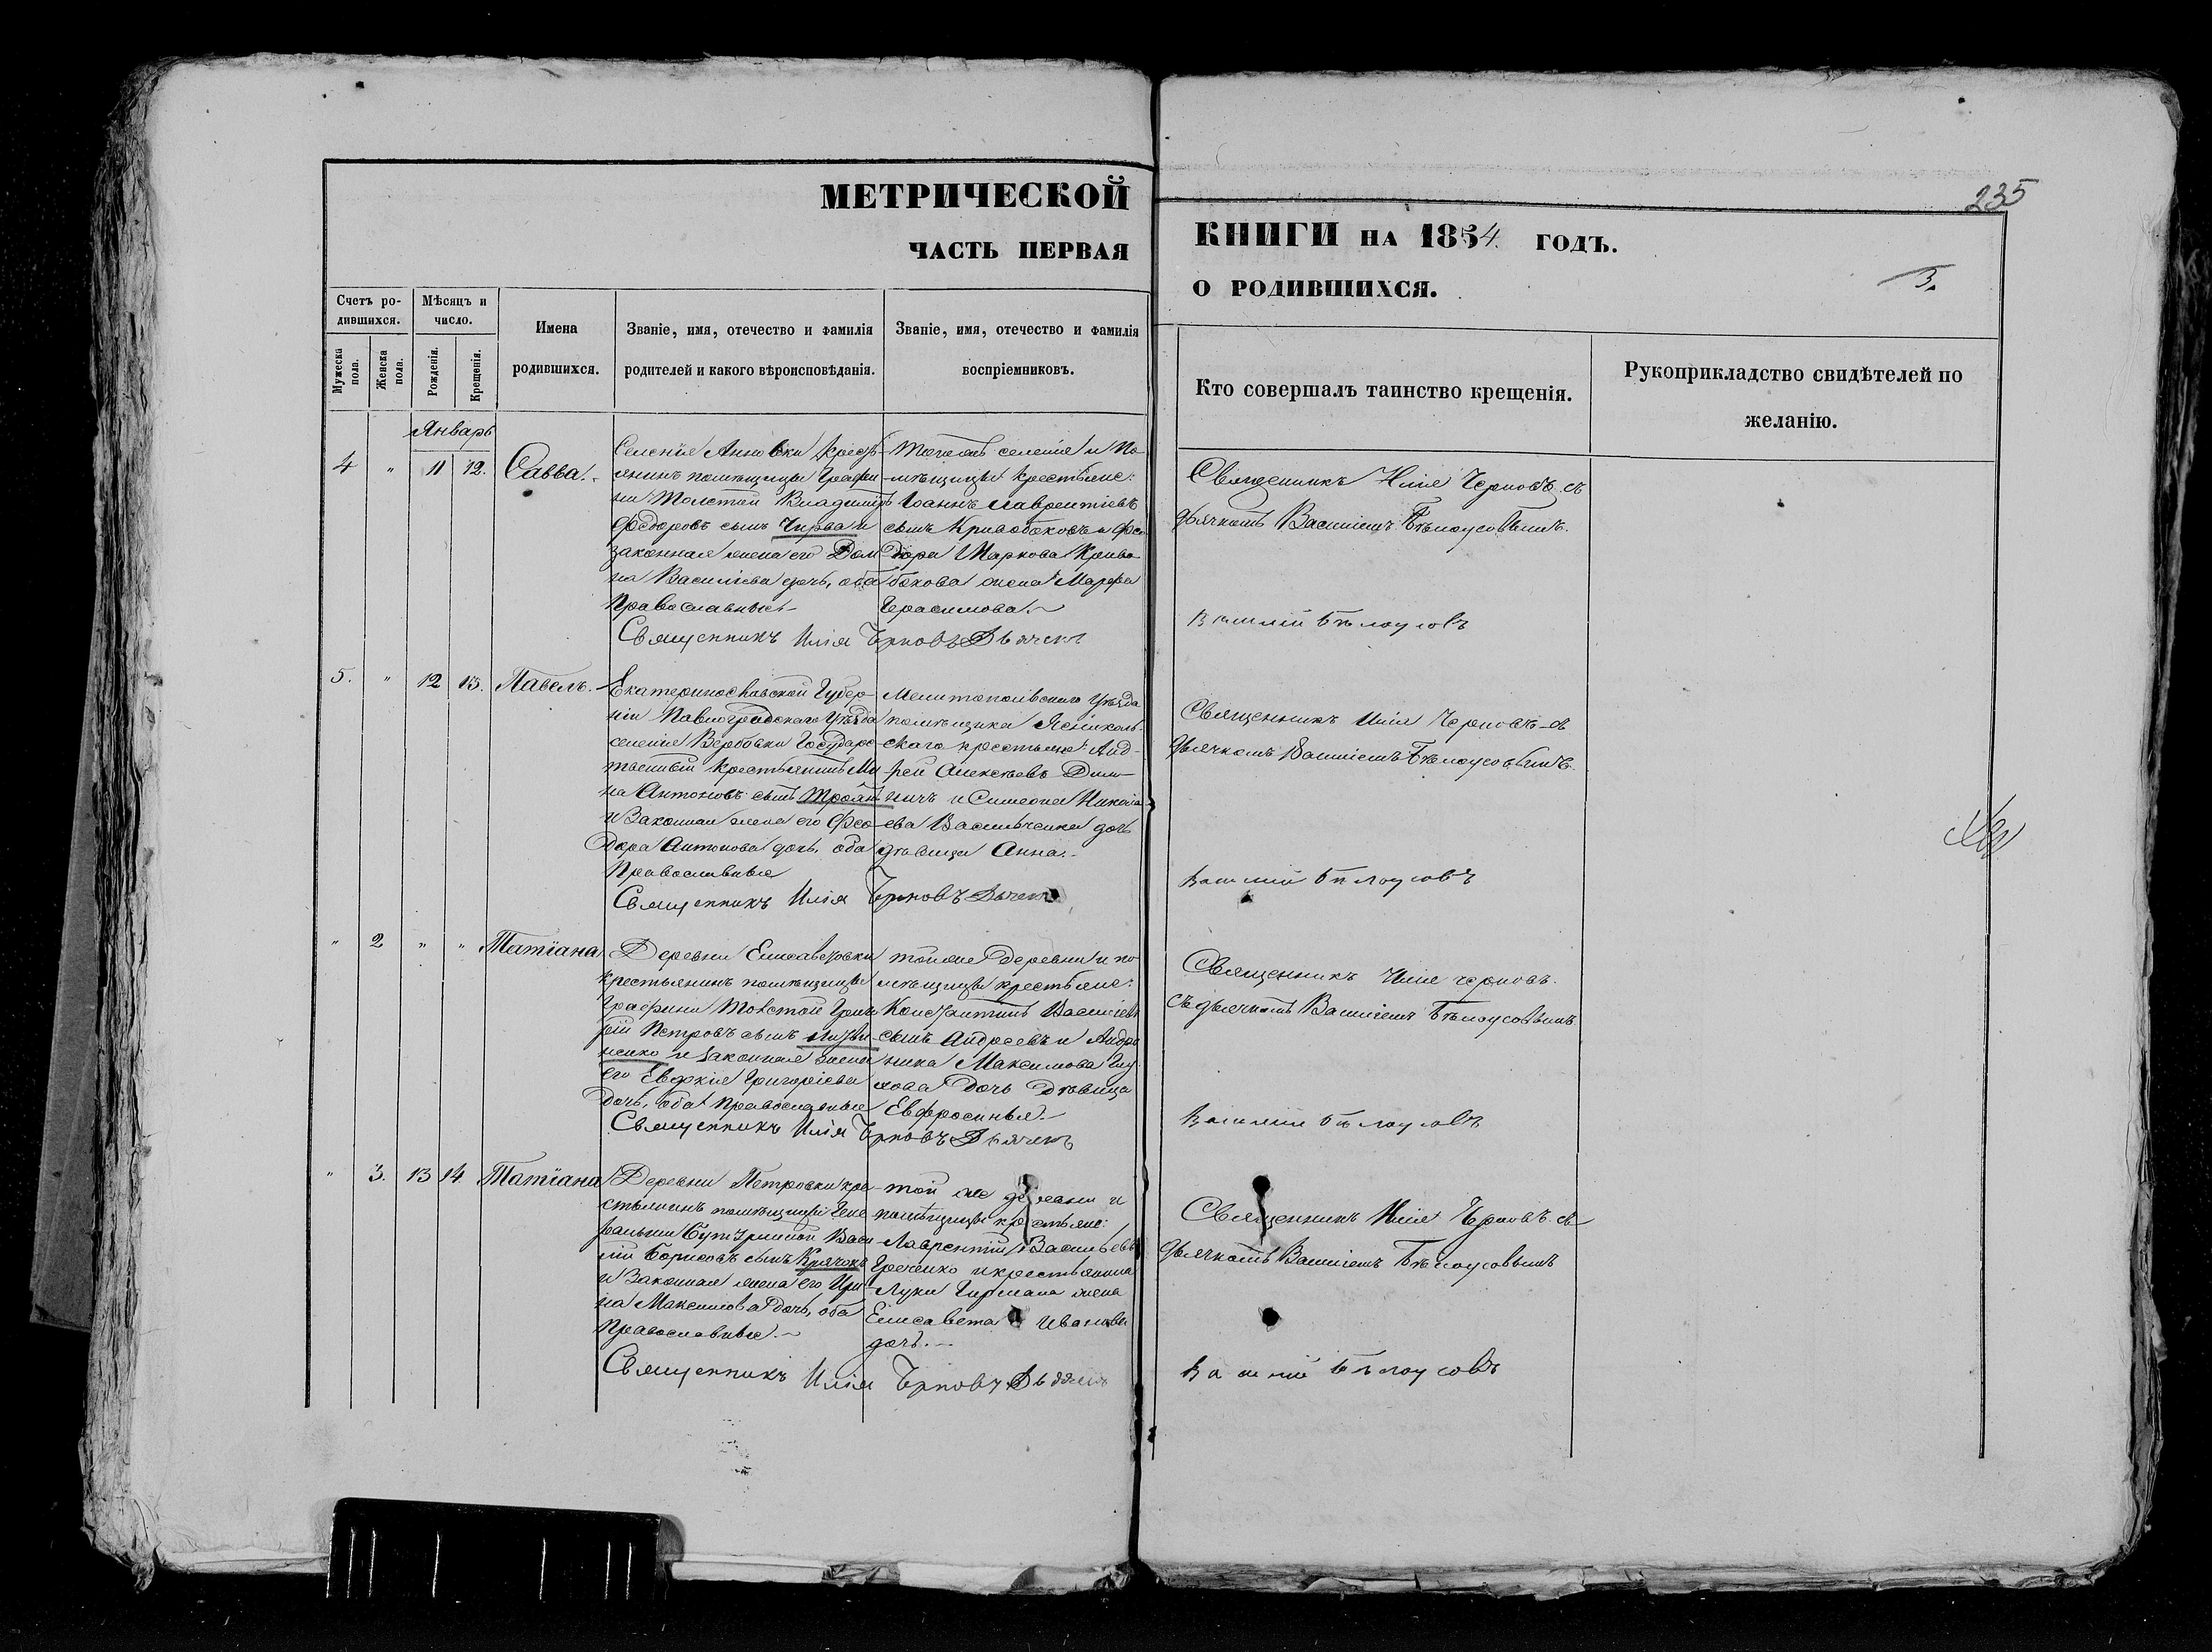 235
МЕТРИЧЕСКОЙ
КНИГИ НА 1854. ГОДЪ.
ЧАСТЬ ПЕРВАЯ
О РОДИВШИХСЯ.
3.
Счетъ ро-
дившихся.
Мужеска пола.
Женска пола.
Мѣсяцъ и
число.
Рожденія.
Крещенія.
Имена
родившихся.
Званіе, имя, отечество и фамилія
родителей и какого вѣроисповѣданія.
Званіе, имя, отечество и фамилія
воспріемниковъ.
Кто совершалъ таинство крещенія.
Рукоприкладство свидѣтелей по
желанію.
Январь
4 " 11 12. Савва.
Селенія Анновки крестъ-
янинъ помѣщицы Графи-
ни Толстой Владиміръ
Федоровъ сынъ Чирва и
законная жена его Дом
на Василіева дочь, оба
Православные
тогожъ селенія и по-
мѣщицы крестьяне:
Іоаннъ Лаврентіевъ
сынъ Кривобоковъ и Фео
дора Маркова Криво-
бокова жена Марфа
Герасимова.
Священникъ Илія Черновъ съ
дьячкомъ Василіемъ Бѣлоусовымъ.
Священникъ Илія Чрновъ Дьячекъ
Василій Бѣлоусовъ
5. " 12 13. Павелъ.
Екатеринославской Губер-
ніи Павлоградскаго Уѣзда
селенія Вербовки Государс-
твенный крестьянинъ Ми
на Антоновъ сынъ Троян
и Законная жена его Фео-
дора Антонова дочь, оба
Православные
Мелитопольскаго Уѣзда
помѣщика
скаго крестьяне: Анд-
рей Алексѣевъ
и Симеона Никола
ева Васильченка дочь
дѣвица Анна.
Священникъ Илія Черновъ съ
дьячкомъ Василіемъ Бѣлоусовымъ.
Священникъ Илія Чрновъ Дьячекъ
Василій Бѣлоусовъ
" 2 " " Татіана
Деревни Елисаветовки
крестьянинъ помѣщицы
Графини Толстой Григо
рій Петровъ сынъ
и законная жена
его Евфкія Григоріева
дочь, оба Православные
тойже деревни и по
мѣщицы крестьяне:
Константинъ Василіевъ
сынъ Андреевъ и Андро
ника Максимова
дочь дѣвица
Евфросинья.
Священникъ Илія Черновъ
съ дьячкомъ Василіемъ Бѣлоусовымъ
Священникъ Илія Чрновъ Дьячекъ
Василій Бѣлоусовъ
" 3. 13 14. Татіана
Деревни Петровки кре-
стьянинъ помѣщицы Гене
ральши Васи
лій Борисовъ сынъ Крячокъ
и Законная жена его Ири
на Максимова дочь, оба
Православные.
той же деревни и
помѣщицы крестьяне:
Лаврентій Васильевъ
Греченко и крестьянина
Луки жена
Елисавета Иванова
дочь.
Священникъ Илія Черновъ съ
дьячкомъ Василіемъ Бѣлоусовымъ
Священникъ Илія Чрновъ Дьячекъ
Василій Бѣлоусовъ